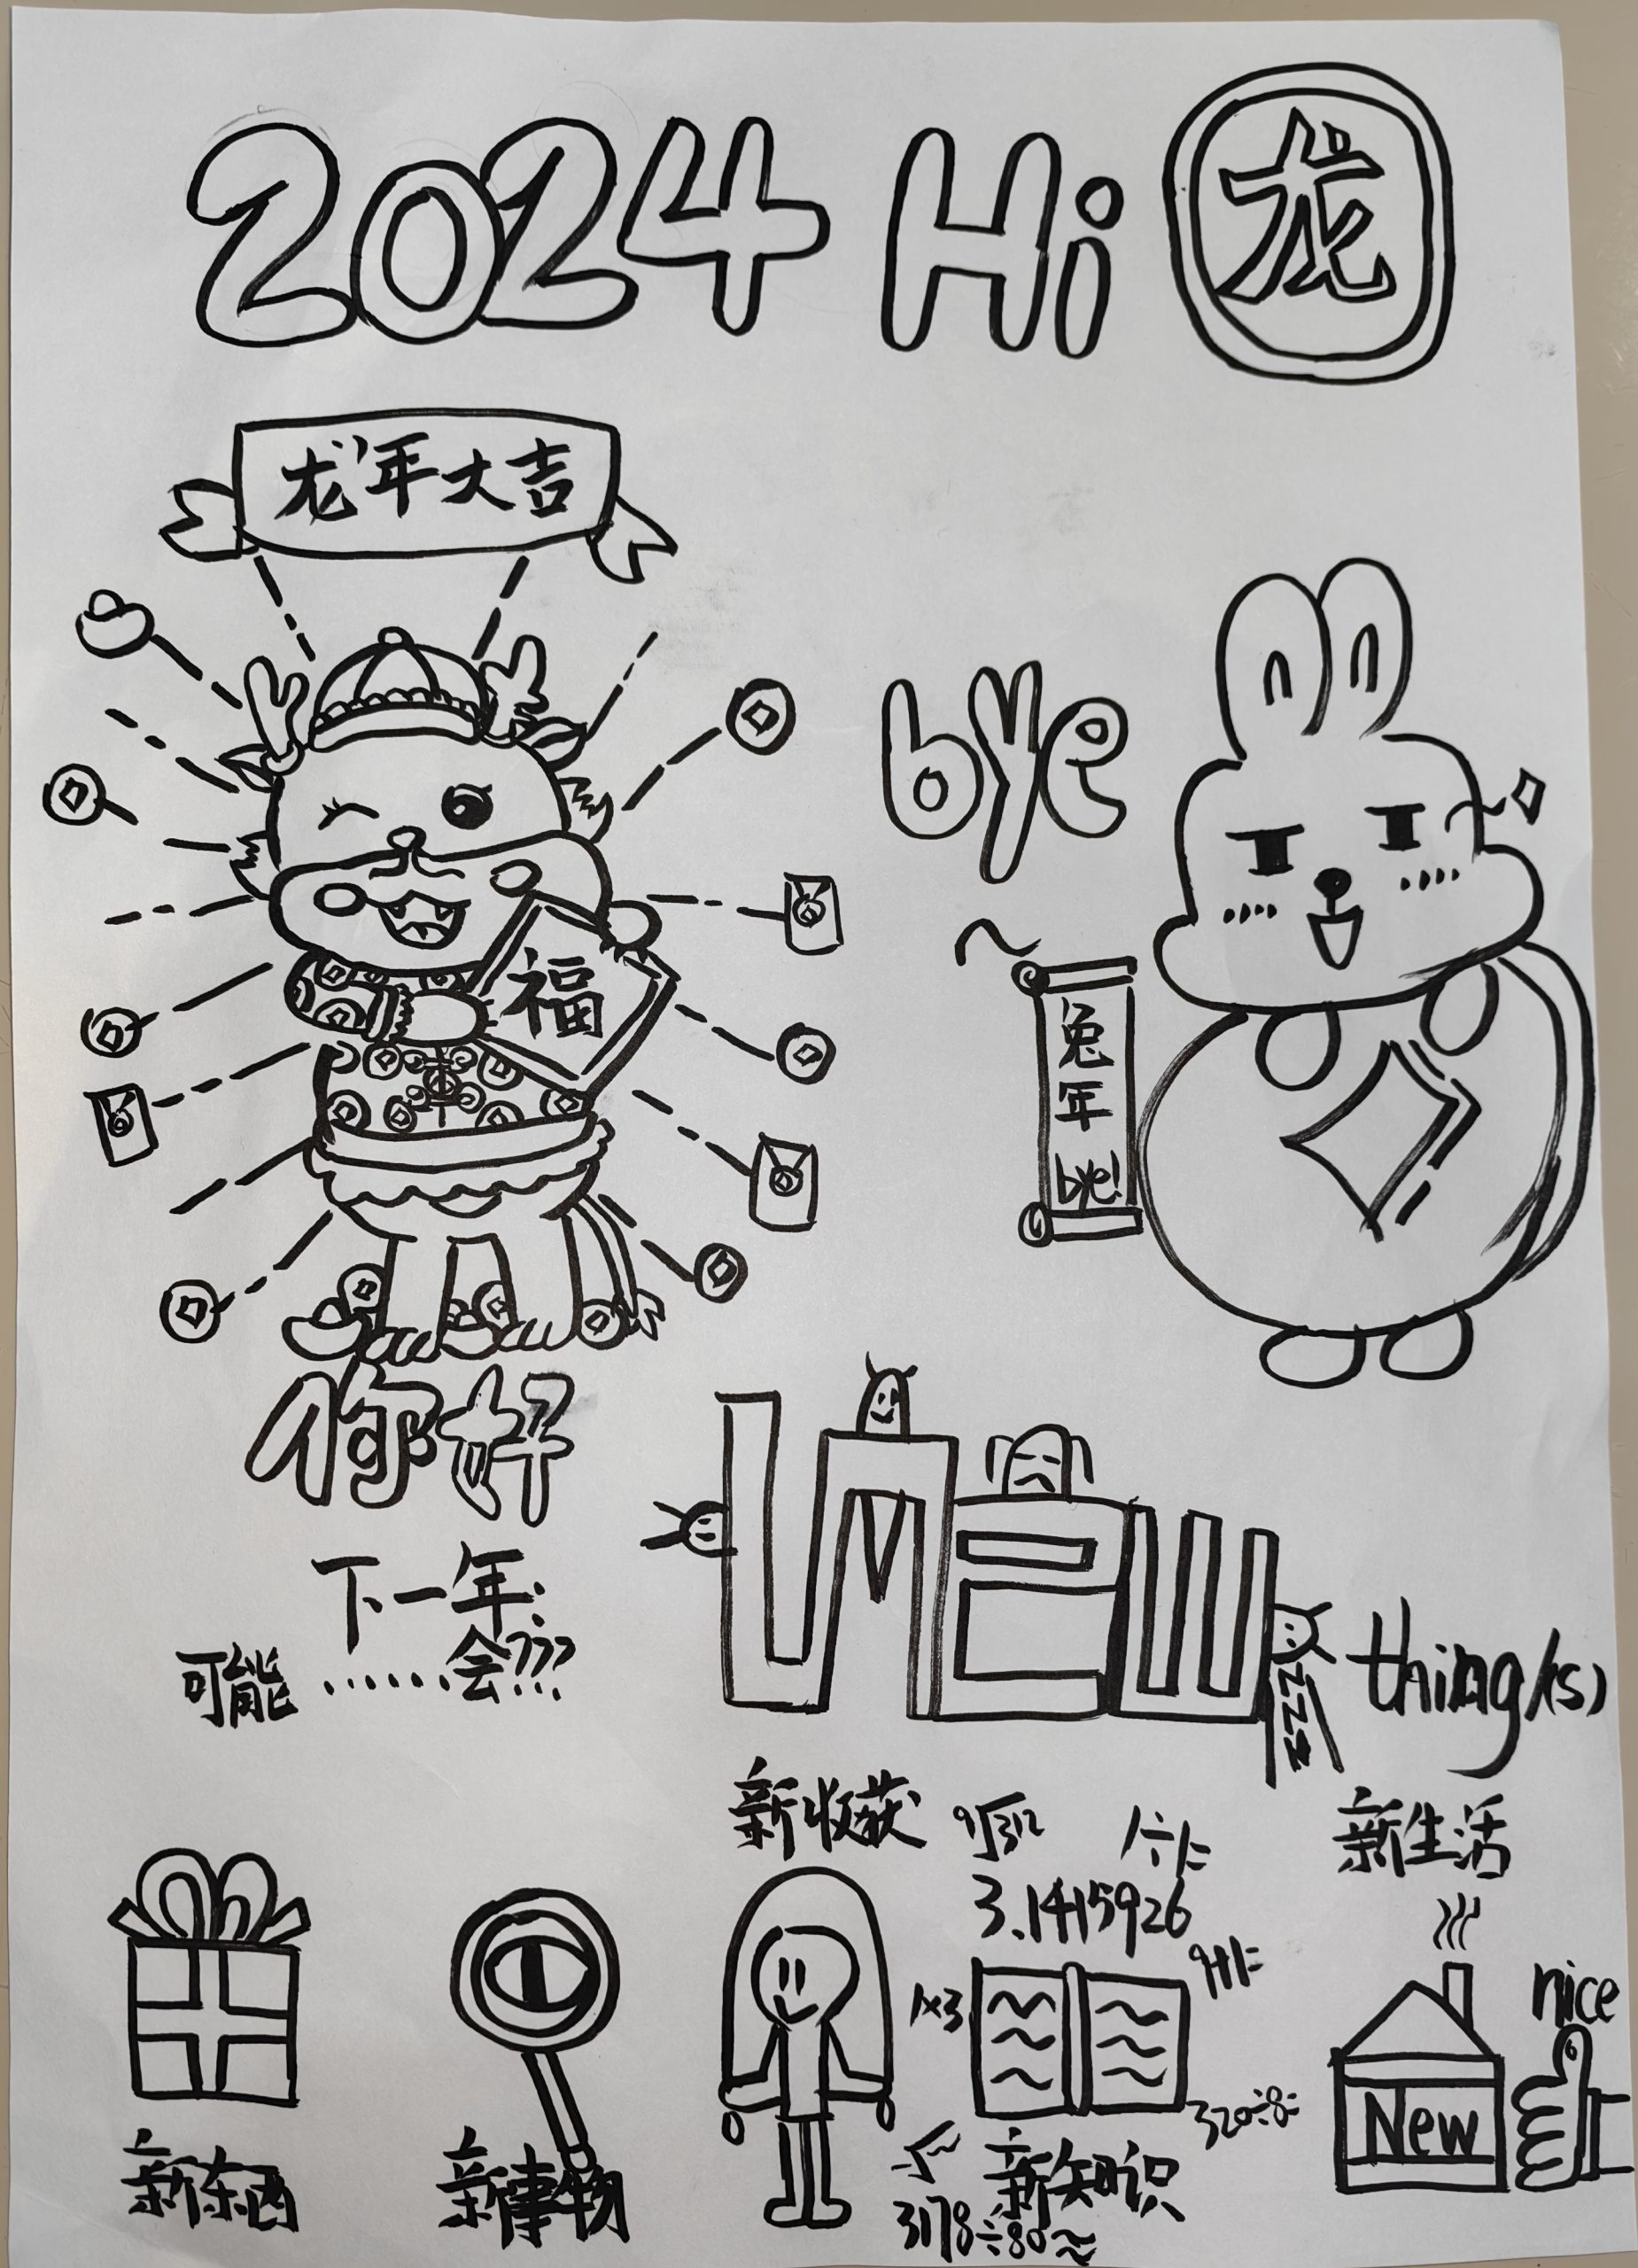 2024 Hi 龙
龙年大吉
bye
福
兔年bye!
你好
NEW thing/(s)
下一年:
可能......会???
新收获
新生活
1÷1=
3.1415926
9+1=
1×3
nice
New
320÷8=
新东西
新事物
新知识
3178÷80≈